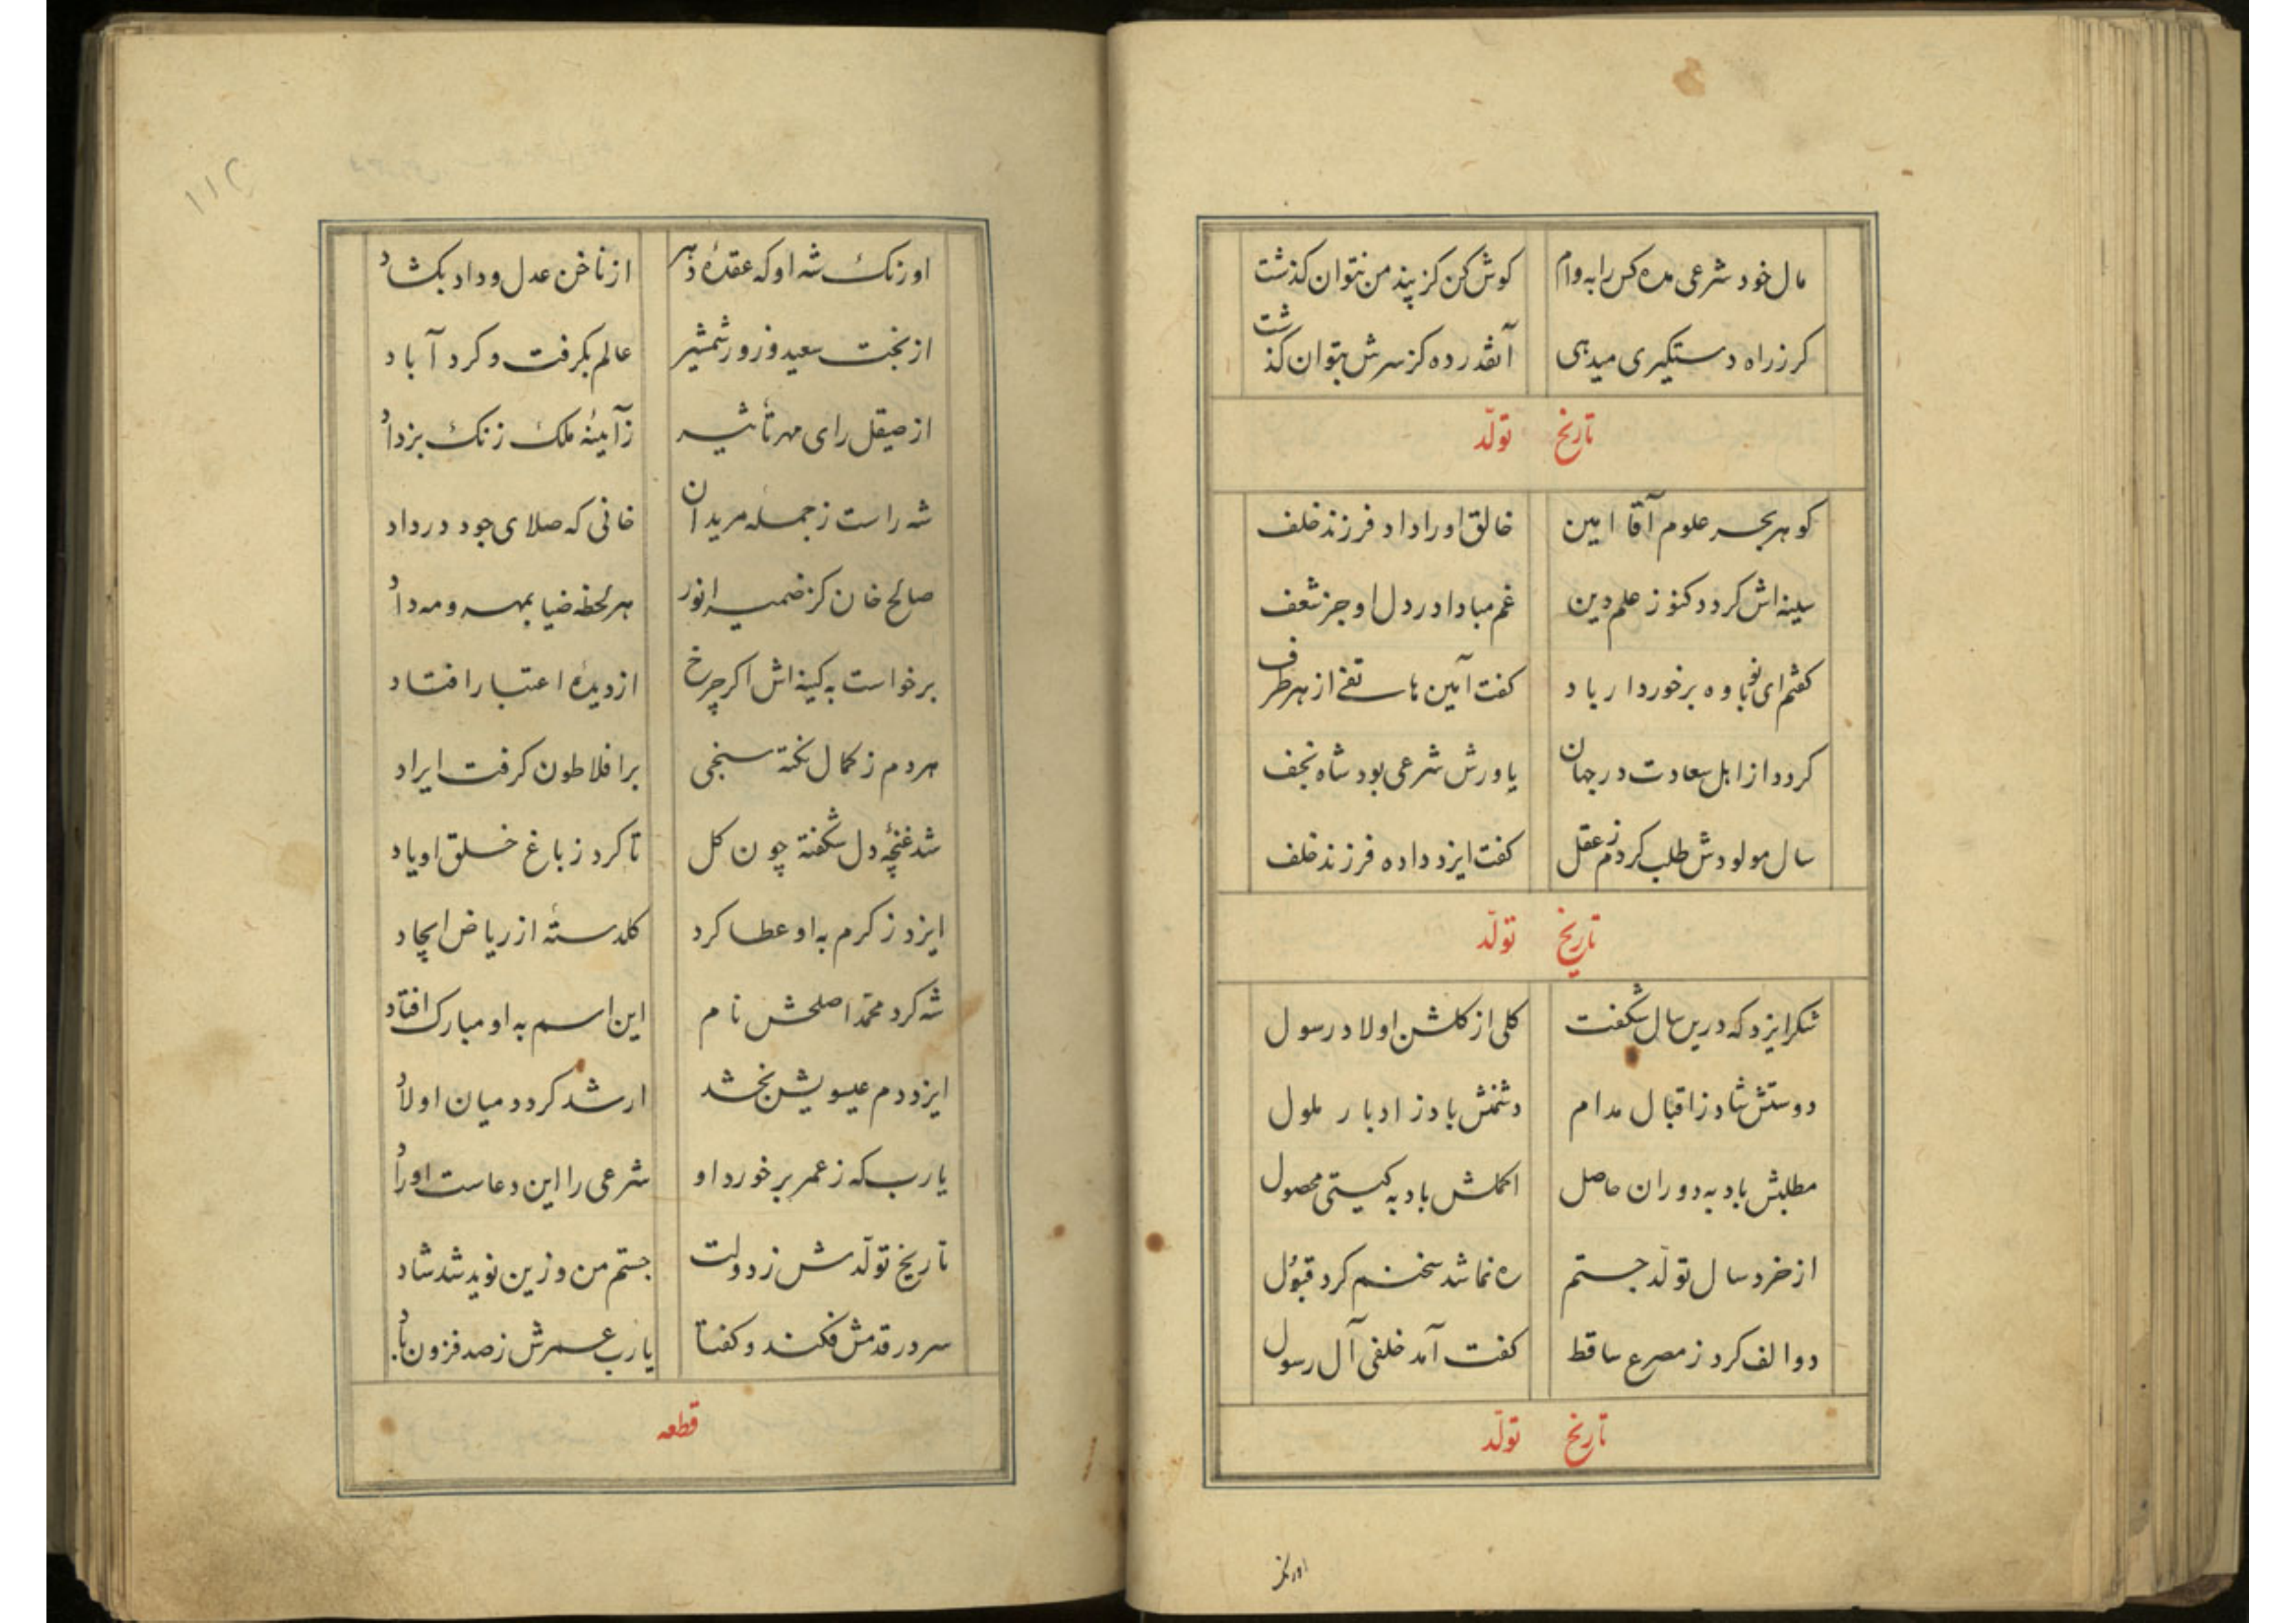 مال خود شرعی مده کس را به وام کوش کن کز پند من نتوان کذشت
کر ز راه دستکیری میدهی آنقدر ده کز سرش بتوان کذشت
تاریخ تولّد
کوهر بحر علوم آقا امین خالق او را داد فرزند خلف
سینه اش کردد کنوز علم دین غم مبادا در دل او جز شعف
کفتم ای نوباوه برخوردار باد کفت آمین هاتفی از هر طرف
کردد از اهل سعادت در جهان یاورش شرعی بود شاه نجف
سال مولودش طلب کردم ز عقل کفت ایزد داده فرزند خلف
تاریخ تولّد
شکر ایزد که درین سال شکفت کلی از کلشن اولاد رسول
دوستش شاد ز اقبال مدام دشمنش باد ز ادبار ملول
مطلبش باد به دوران حاصل اکملش باد به کیتی محصول
از خرد سال تولّد جستم ره نما شد سخنم کرد قبول
دو الف کرد ز مصرع ساقط کفت آمد خلفی آل رسول
تاریخ تولّد
اورنک
اورنک شه او که عقدهٔ دهر از ناخن عدل و داد بکشاد
از بخت سعید و زور شمشیر عالم بکرفت و کرد آباد
از صیقل رای مهر تأثیر ز آینهٔ ملک زنک بزداد
شه راست ز جمله مریدان خانی که صلای جود در داد
صالح خان کز ضمیر انور هر لحظه ضیا بمهر و مه داد
برخواست به کینه اش اکر چرخ از دیدهٔ اعتبار افتاد
هر دم ز کمال نکته سنجی بر افلاطون کرفت ایراد
شد غنچهٔ دل شکفته چون کل تا کرد ز باغ خلق او یاد
ایزد ز کرم به او عطا کرد کلدستهٔ از ریاض ایجاد
شه کرد محمّد اصلحش نام این اسم به او مبارک افتاد
ایزد دم عیسویش بخشد ارشد کردد میان اولاد
یا رب که ز عمر برخورد او شرعی را این دعاست اوراد
تاریخ تولّدش ز دولت جستم من و زین نوید شد شاد
سر در قدمش فکند و کفتا یا رب عمرش ز صد فزون باد
قطعه